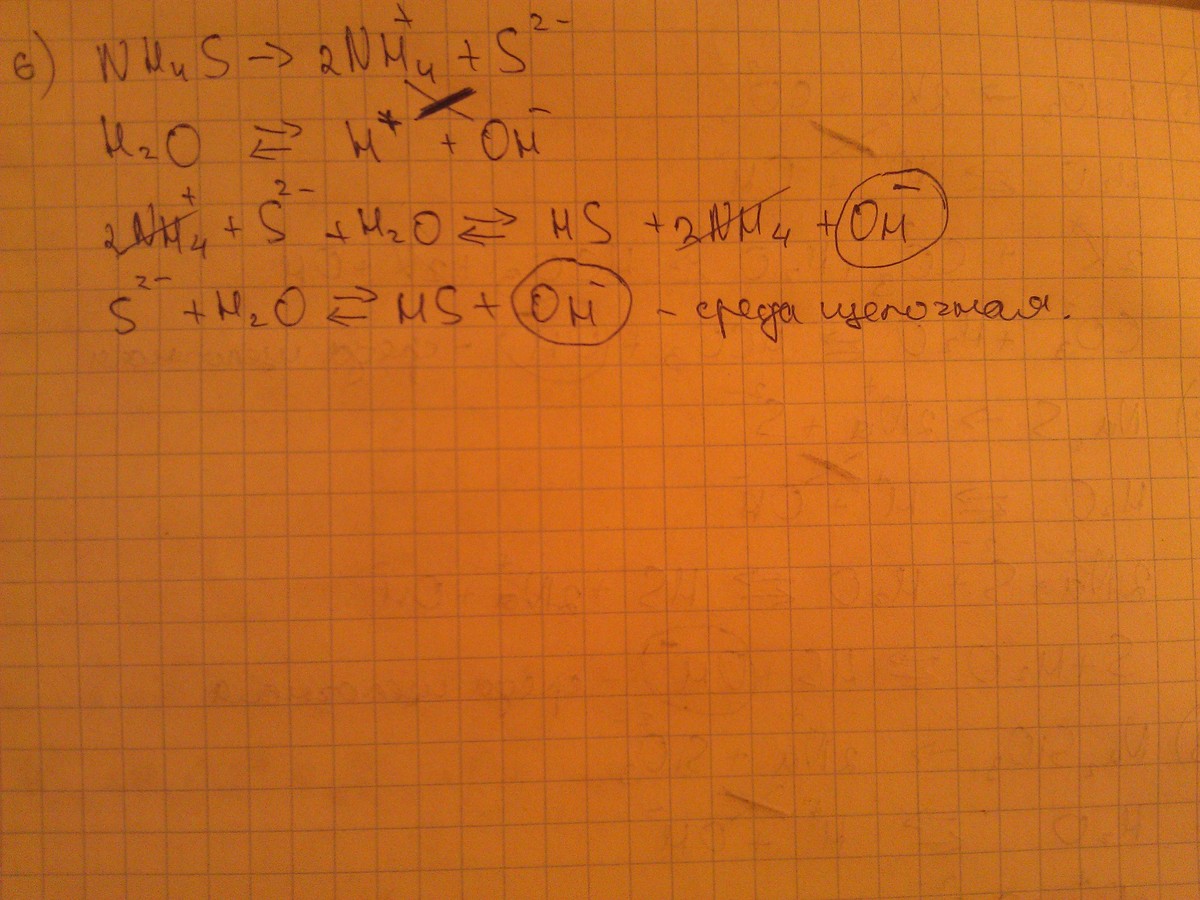 6) NH₄S → 2NH₄⁺ + S²⁻
H₂O ⇄ H⁺ + OH⁻
2NH₄⁺ + S²⁻ + H₂O ⇄ HS + 2NH₄ + OH⁻
S²⁻ + H₂O ⇄ HS + OH⁻ - среда щелочная.